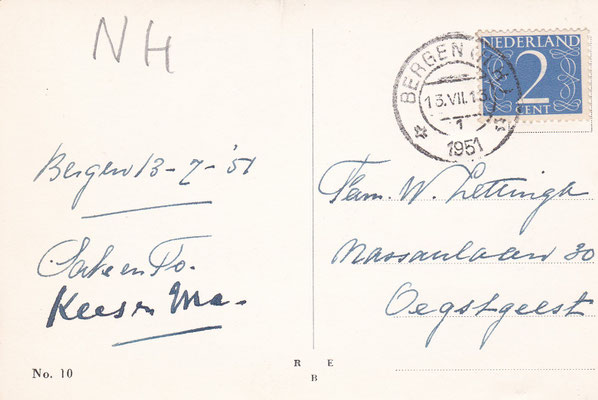 NH
Bergen 13-7-'51
en Fo.
Kees en
No. 10
R E
B
BERGEN (N.H.)
13.VII.13
1
1951
NEDERLAND
2
CENT
Fam. W. Lettinga
Nassaulaan 30
Oegstgeest